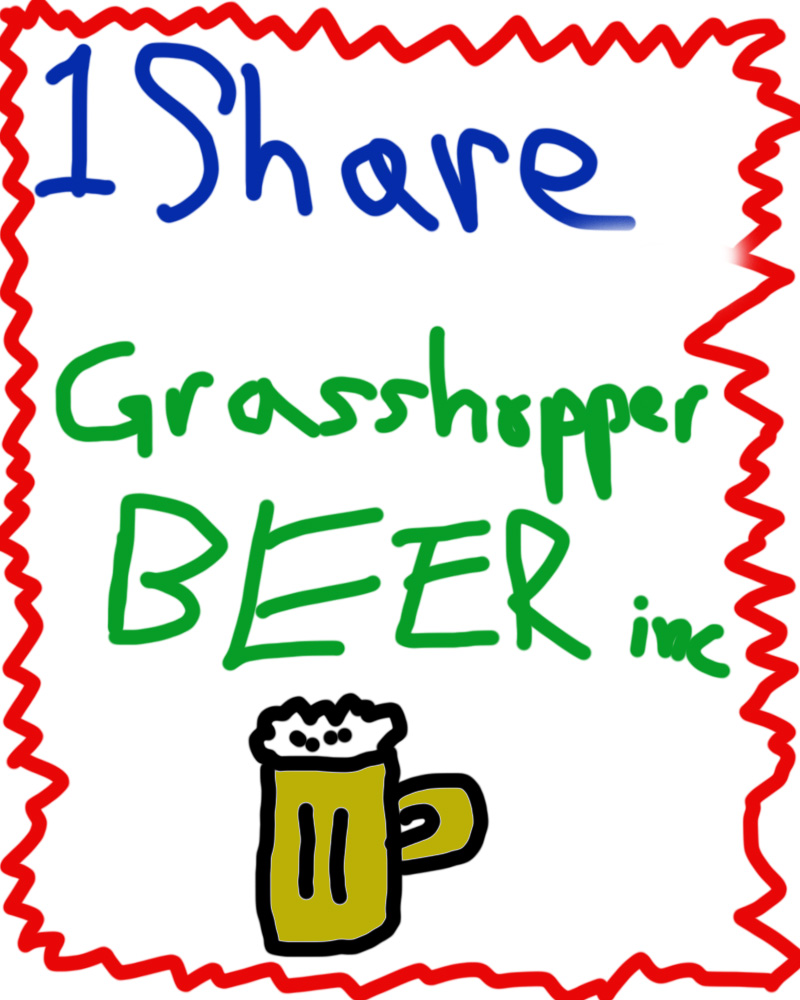 1 Share
Grasshopper
BEER inc